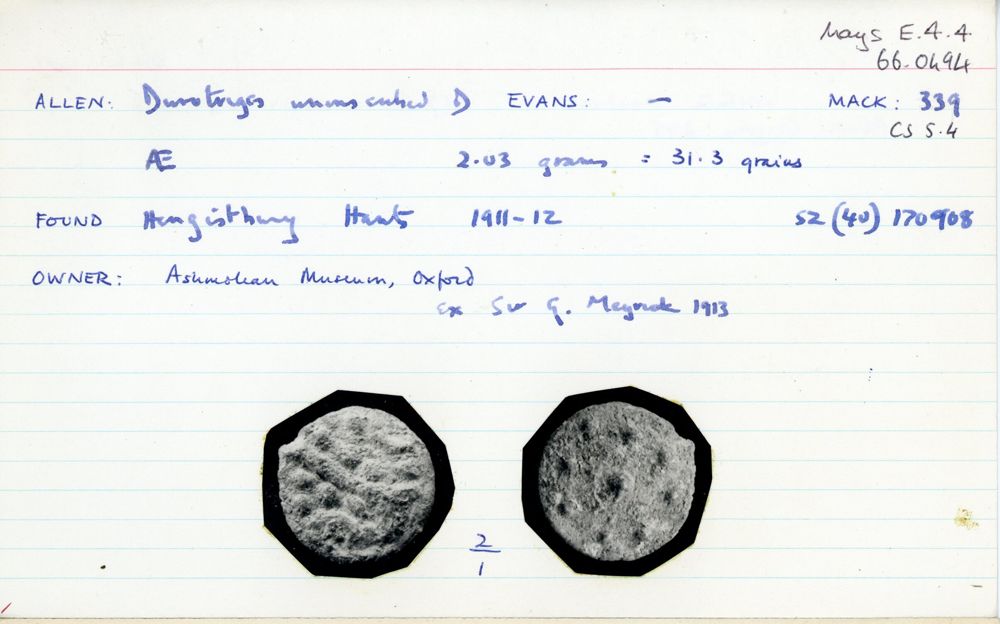 Mays E.4.4
66.0494
ALLEN: Durotriges uninscribed D EVANS: — MACK: 339
CS S.4
Æ 2.03 grams = 31.3 grains
FOUND Hengistbury Hants 1911-12 SZ (40) 170908
OWNER: Ashmolean Museum, Oxford
ex Sir G. Meyrick 1913
2
1